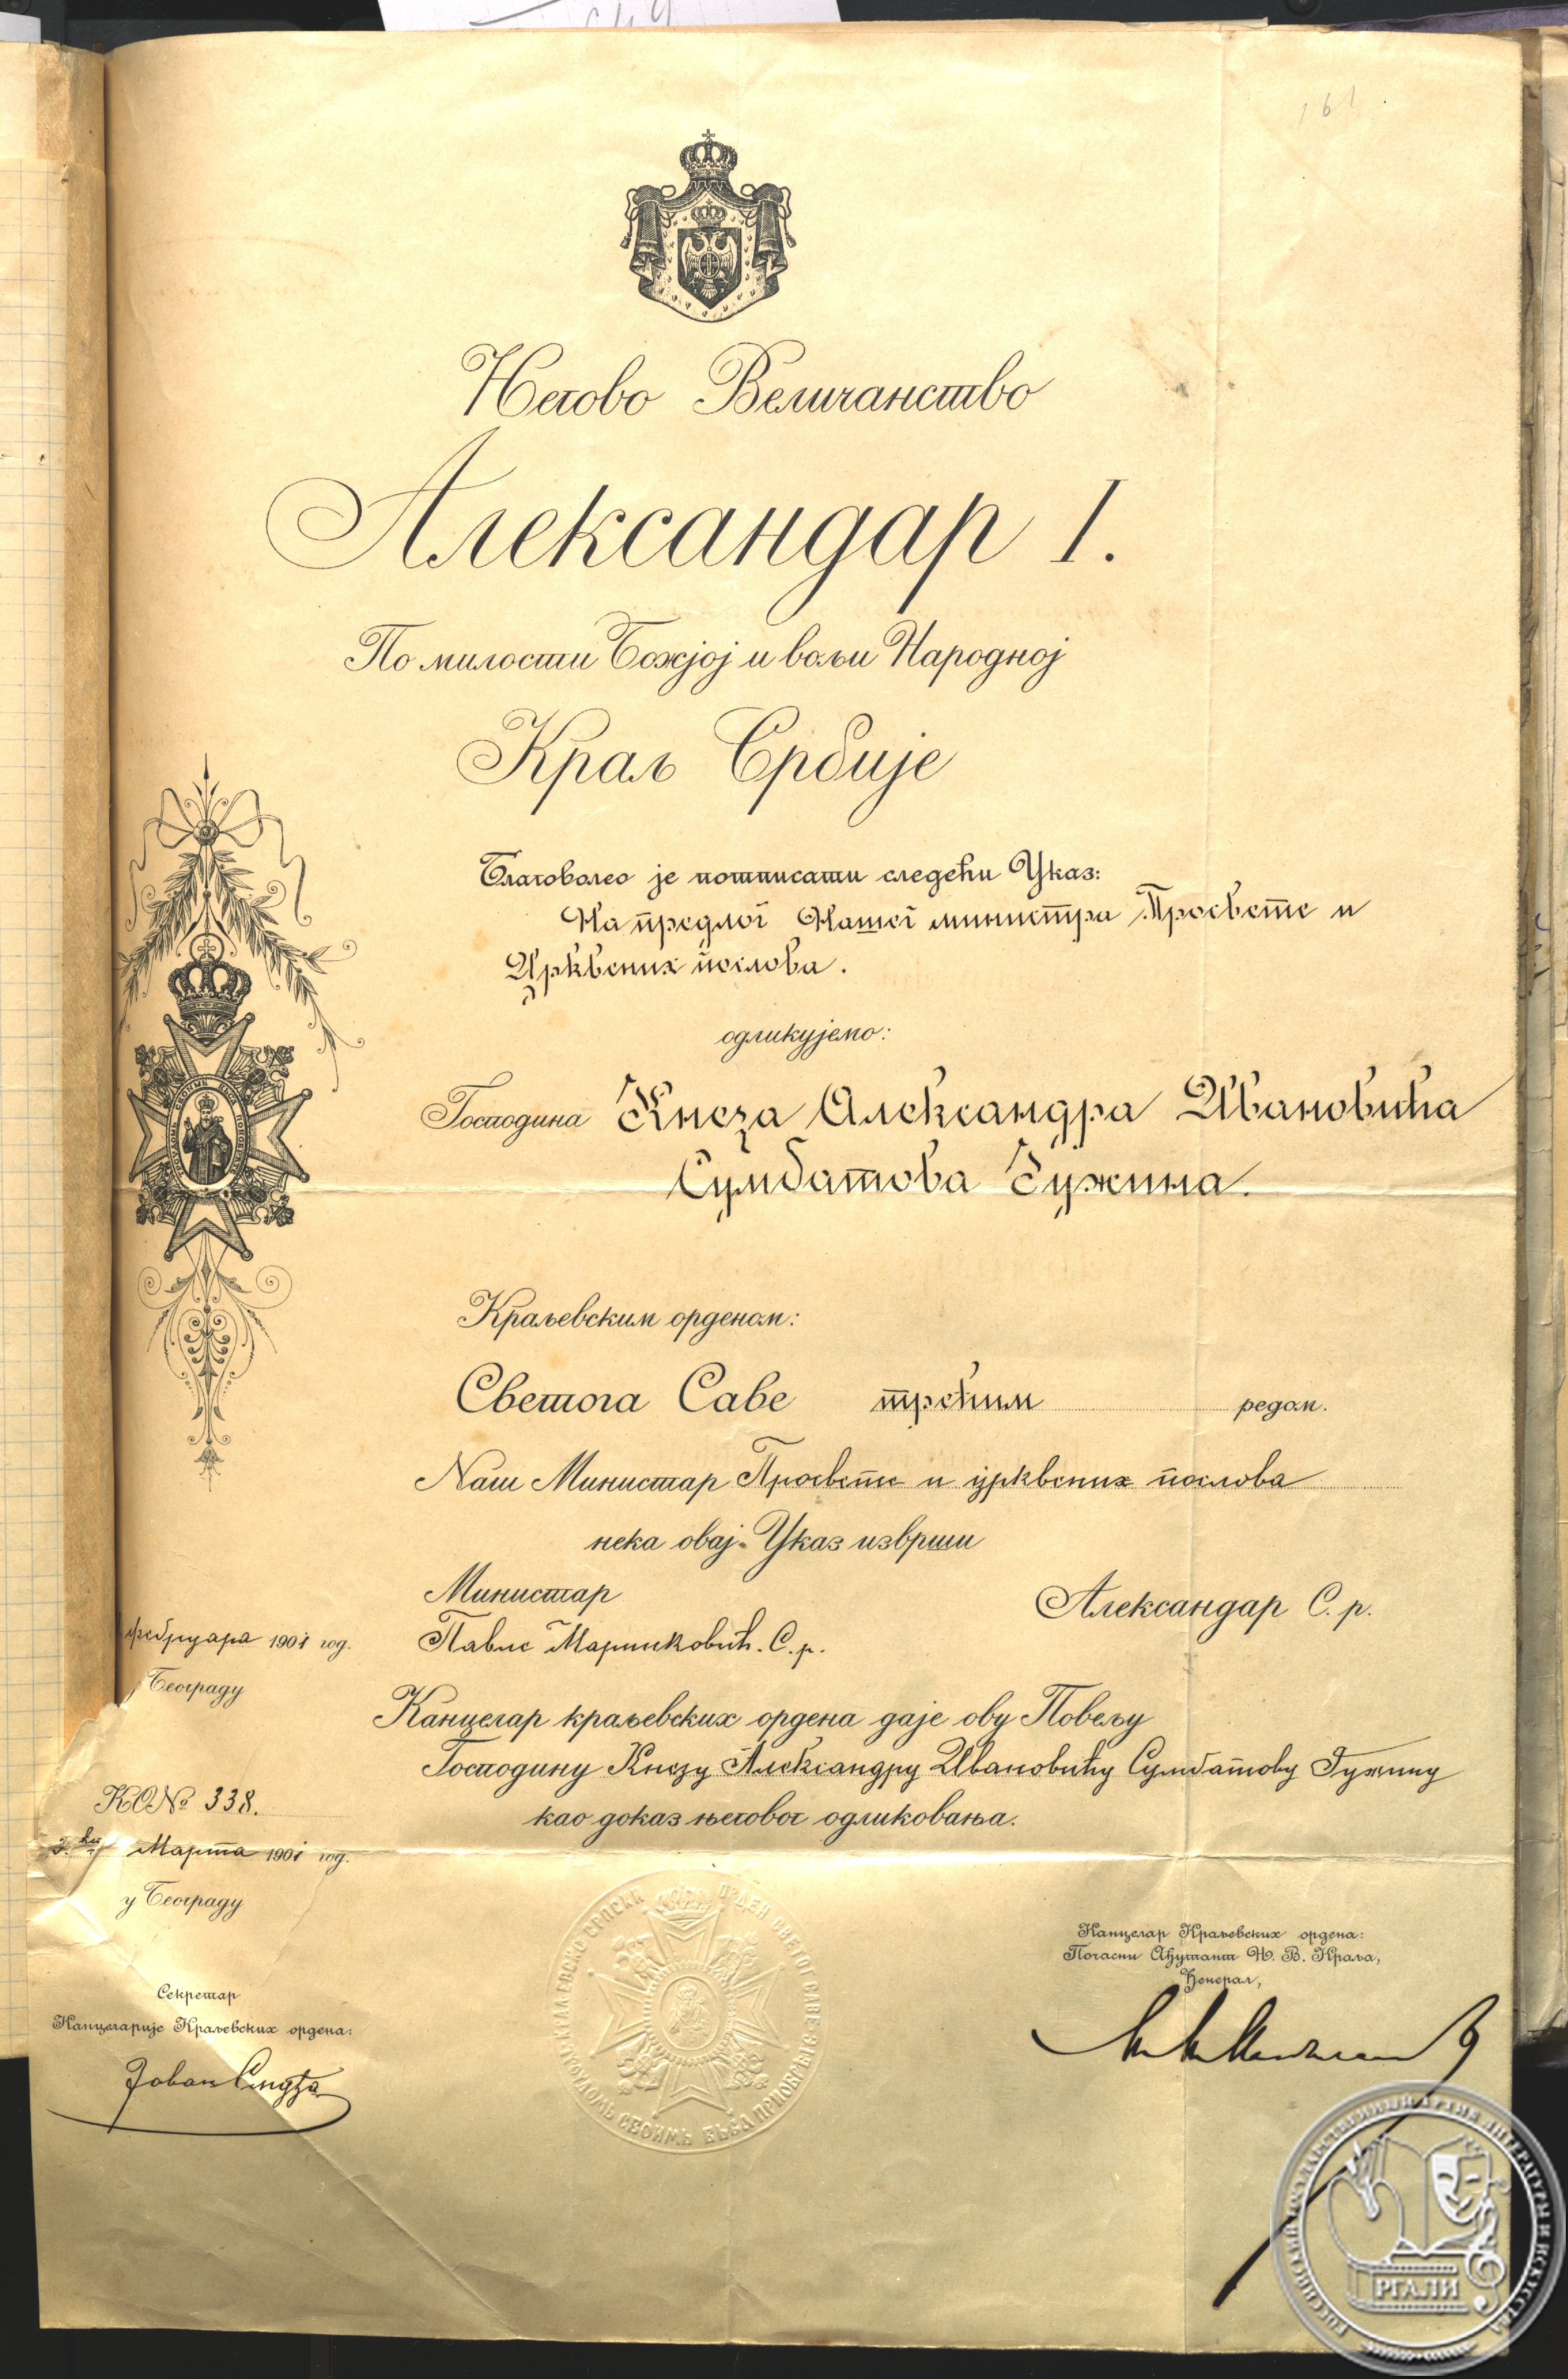 161
Његово Величанство
Александар I.
По милости Божјој и вољи Народној
Краљ Србије
Благоволео је потписати следећи Указ:
На предлог Нашег министра Просвете и
Црквених послова.
одликујемо:
Господина Кнеза Александра Ивановића
Сумбатова Јужина.
Краљевским орденом:
Светога Саве трећим редом.
Наш Министар Просвете и црквених послова
нека овај Указ изврши
Министар
Александар С. р.
фебруара 1901 год.
Павле Маринковић. С. р.
Београду
Канцелар краљевских ордена даје ову Повељу
Господину Кнезу Александру Ивановићу Сумбатову Јужину
као доказ његовог одликовања.
КО№ 338.
Марта 1901 год.
у Београду
Канцелар Краљевских ордена:
Почасни Ађутант Њ. В. Краља,
Ђенерал,
Секретар
Канцеларије Краљевских ордена:
Јован
КРАЉЕВСКО СРПСКИ ОРДЕН СВЕТОГ САВЕ
ТРУДОМЬ СВОИМЬ ВЬСА ПРИОБРѢТЕ
РОССИЙСКИЙ ГОСУДАРСТВЕННЫЙ АРХИВ ЛИТЕРАТУРЫ И ИСКУССТВА
РГАЛИ